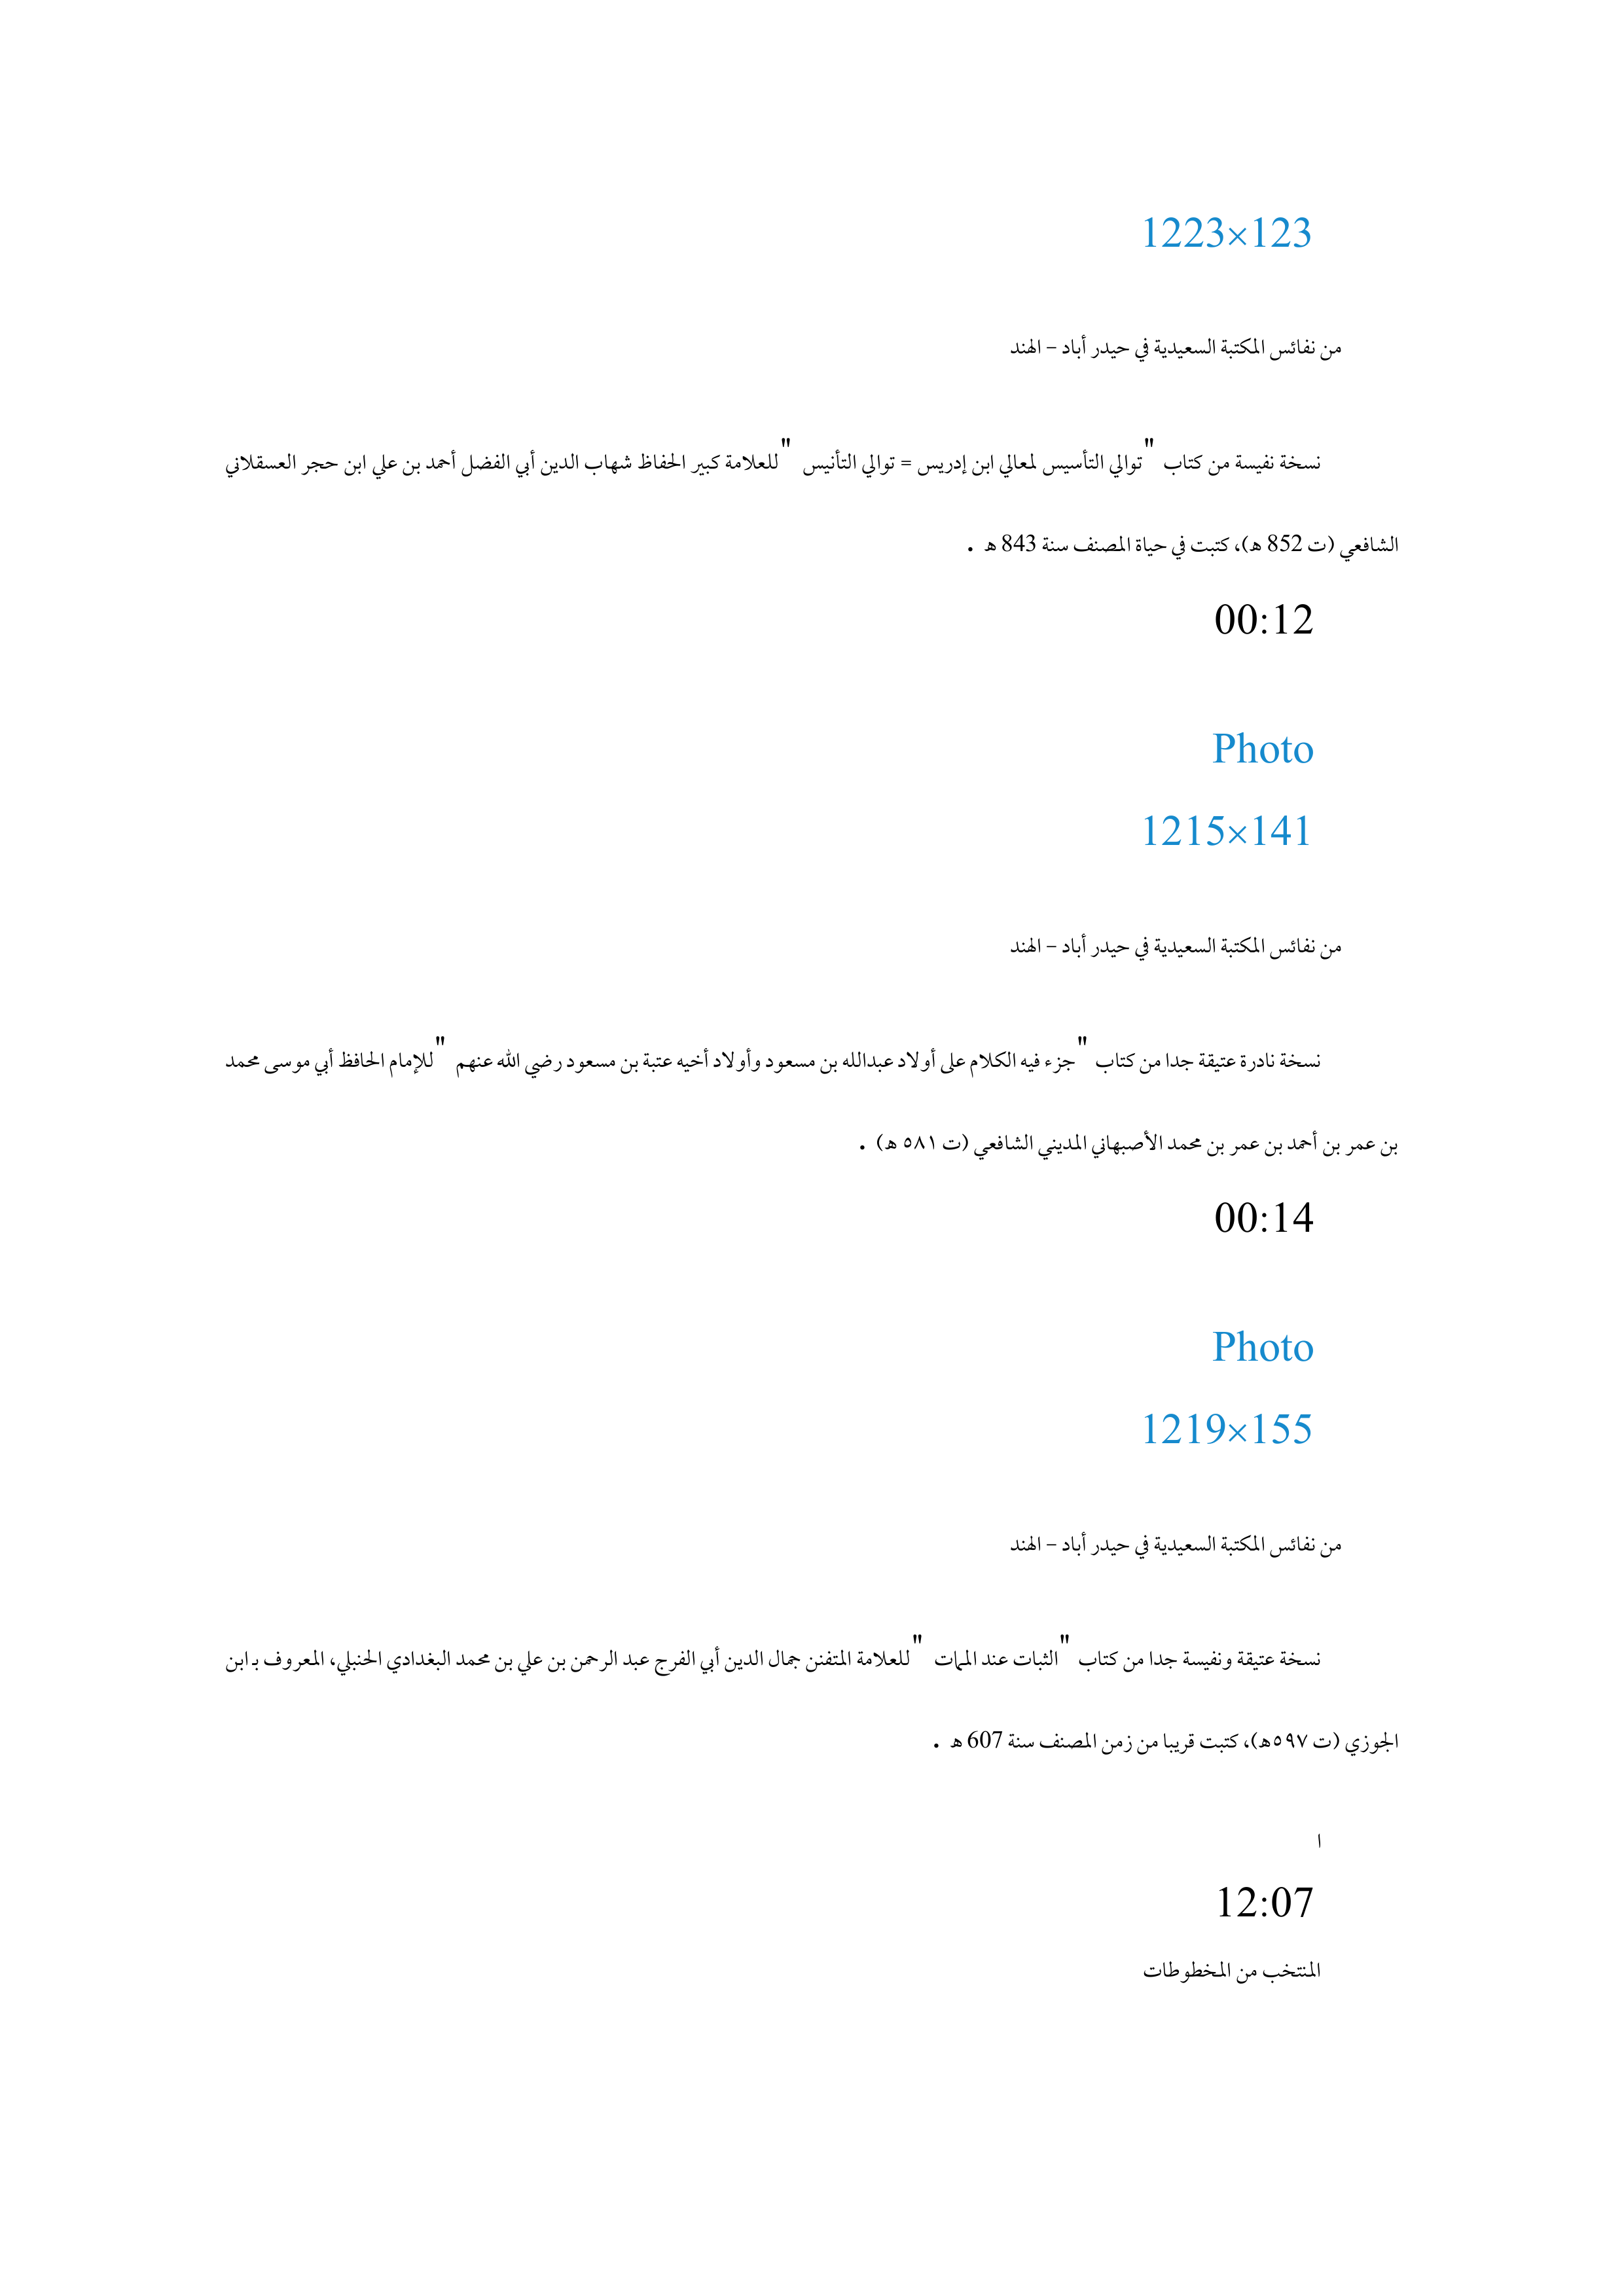 1223×123
من نفائس المكتبة السعيدية في حيدر أباد – الهند
نسخة نفيسة من كتاب "توالي التأسيس لمعالي ابن إدريس = توالي التأنيس "للعلامة كبير الحفاظ شهاب الدين أبي الفضل أحمد بن علي ابن حجر العسقلاني
الشافعي (ت 852 ه)، كتبت في حياة المصنف سنة 843 ه .
00:12
Photo
1215×141
من نفائس المكتبة السعيدية في حيدر أباد – الهند
نسخة نادرة عتيقة جدا من كتاب "جزء فيه الكلام على أولاد عبدالله بن مسعود وأولاد أخيه عتبة بن مسعود رضي الله عنهم "للإمام الحافظ أبي موسى محمد
بن عمر بن أحمد بن عمر بن محمد الأصبهاني المديني الشافعي (ت ٥٨١ ه) .
00:14
Photo
1219×155
من نفائس المكتبة السعيدية في حيدر أباد – الهند
نسخة عتيقة ونفيسة جدا من كتاب "الثبات عند الممات "للعلامة المتفنن جمال الدين أبي الفرج عبد الرحمن بن علي بن محمد البغدادي الحنبلي، المعروف بـ ابن
الجوزي (ت ٥٩٧ه)، كتبت قريبا من زمن المصنف سنة 607 ه .
ا
12:07
المنتخب من المخطوطات